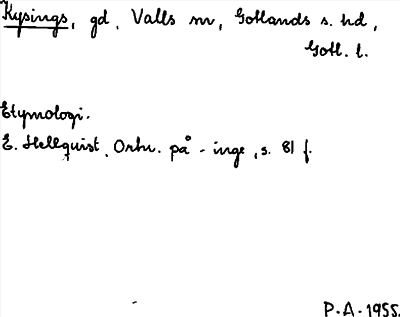 Kysings, gd, Valls sn, Gotlands s. hd,
Gotl. l.
Etymologi.
E. Hellquist, Ortn. på -inge, s. 81 f.
P.A. 1955.